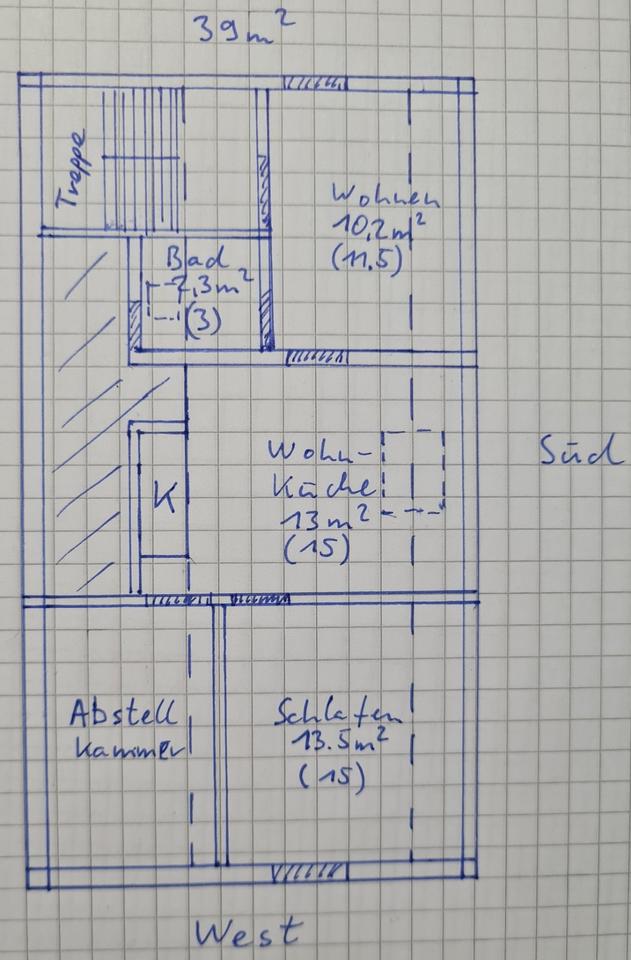 39m²
Treppe
Wohnen
10,2m²
(11,5)
Bad
2,3m²
(3)
Wohn-
Küche
13m²
(15)
K
Süd
Abstell
kammer
Schlafen
13.5m²
(15)
West